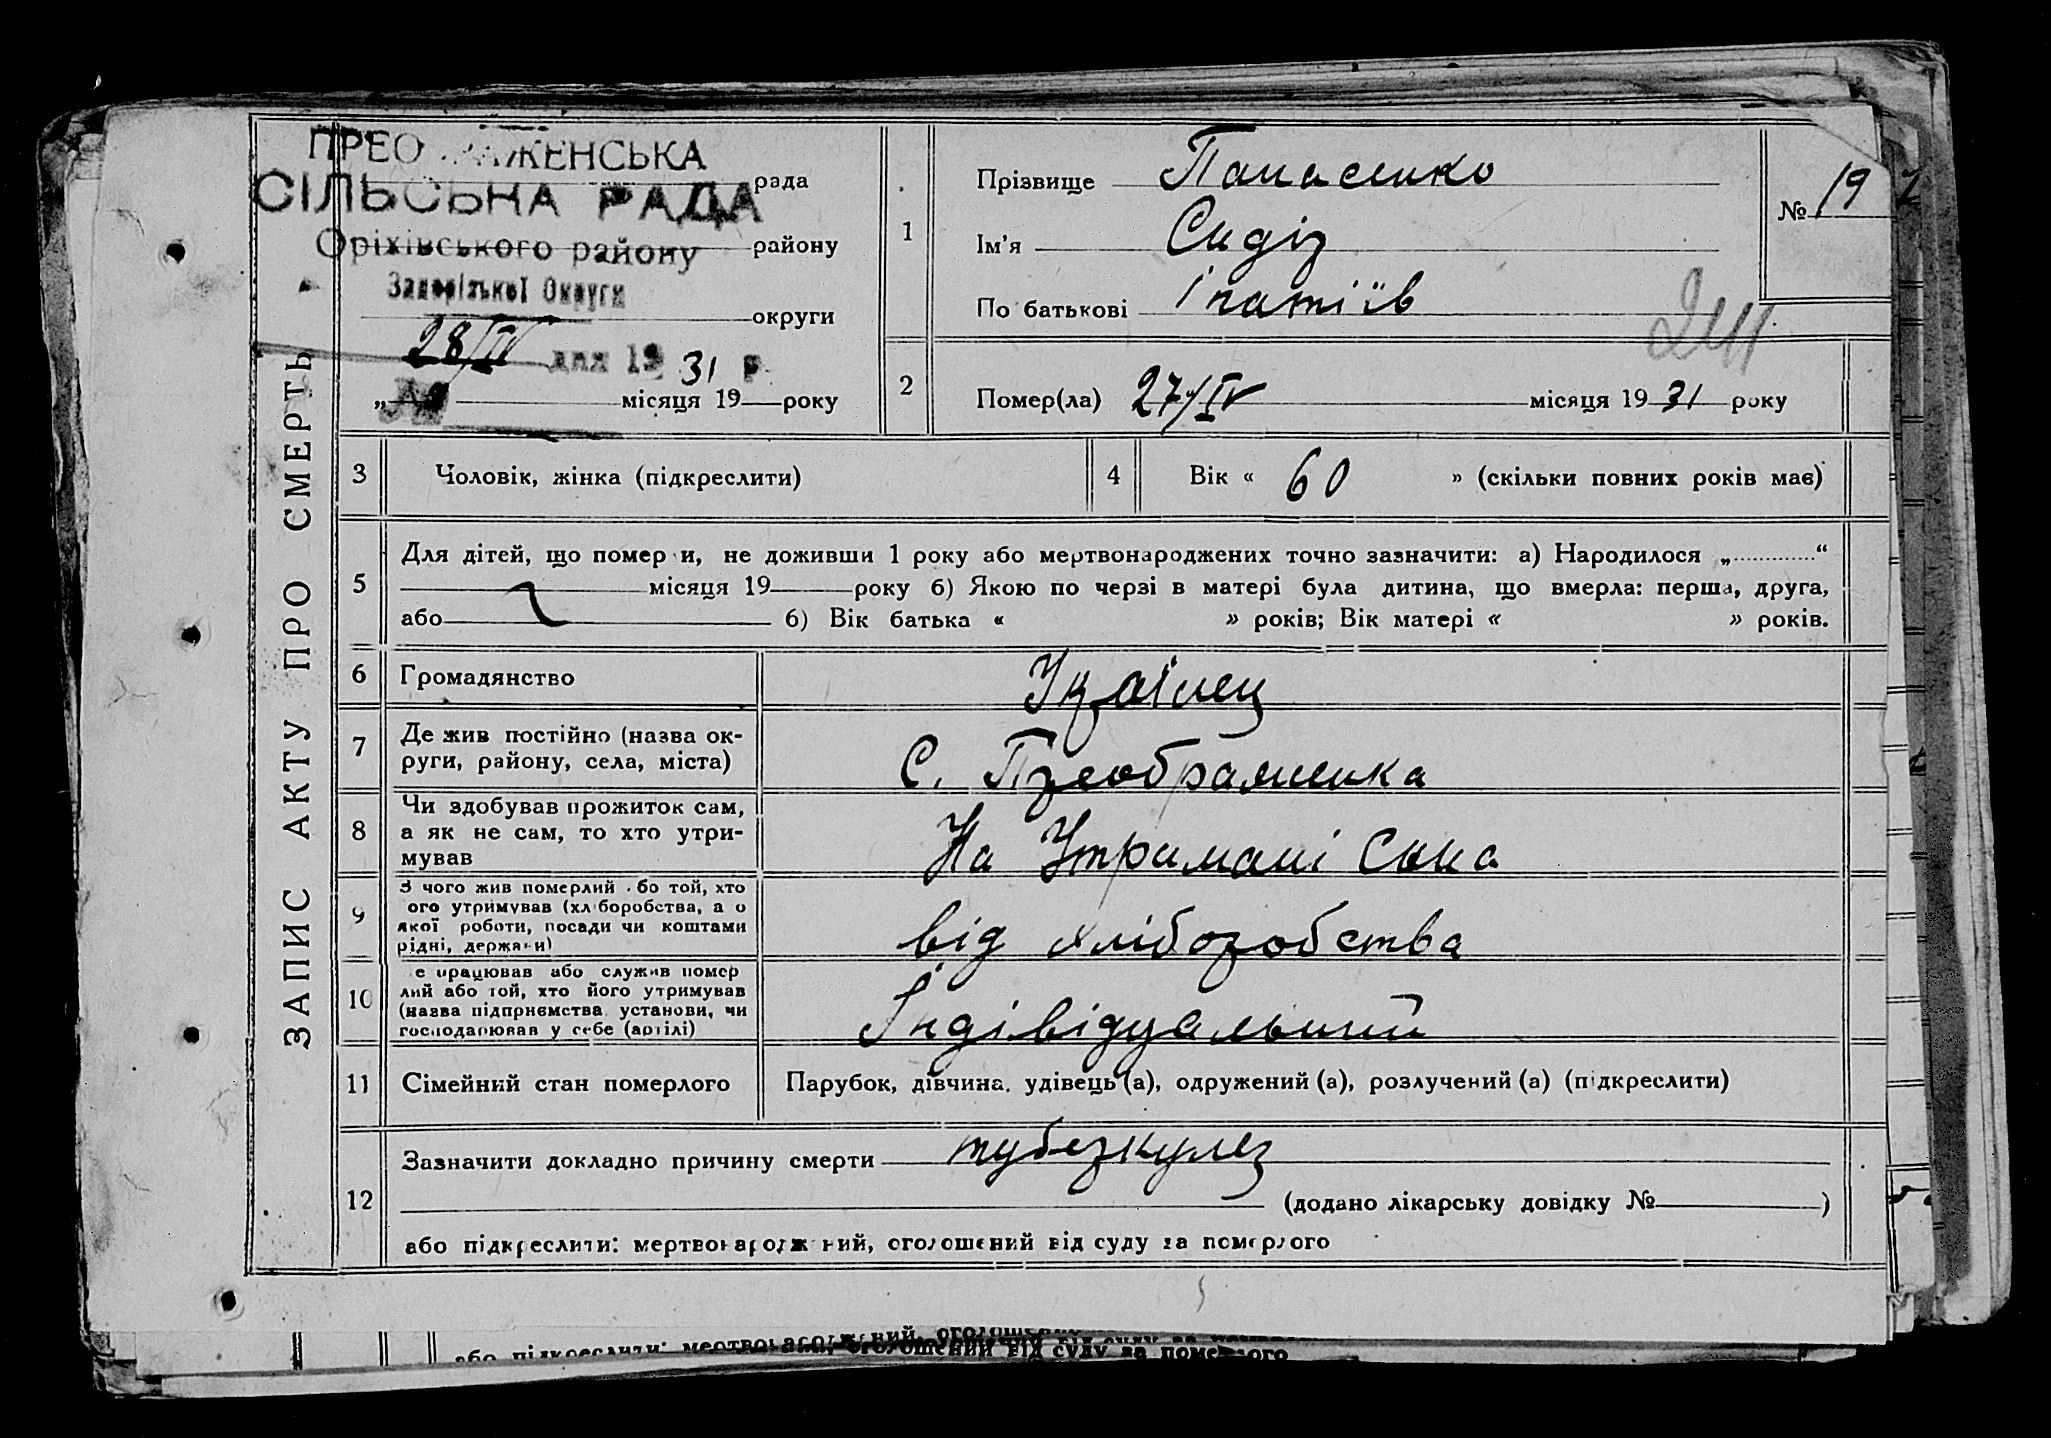 ЗАПИС АКТУ ПРО СМЕРТЬ
ПРЕО АЖЕНСЬКА
рада
СІЛЬСЬНА РАДА
Оріхівського району
району
Запорізької Округи
округи
28/IV дня 1931 р.
„ № місяця 19 року
1
Прізвище Панасенко
Ім'я Сидір
По батькові Іпатіїв
№ 19
2
Помер(ла) 27/IV місяця 1931 року
3 Чоловік, жінка (підкреслити)
4 Вік « 60 » (скільки повних років має)
5
Для дітей, що помер и, не доживши 1 року або мертвонароджених точно зазначити: а) Народилося „ “
місяця 19 року б) Якою по черзі в матері була дитина, що вмерла: перша, друга,
або б) Вік батька « » років; Вік матері « » років.
6 Громадянство Українец
7 Де жив постійно (назва ок-
руги, району, села, міста) С. Преображенка
8 Чи здобував прожиток сам,
а як не сам, то хто утри-
мував На Утримані Сина
9 З чого жив померлий бо той, хто
ого утримував (хліборобства, а о
якої роботи, посади чи коштами
рідні, держави) від хліборобства
10 е працював або служив помер
лий або той, хто його утримував
(назва підприємства установи, чи
господарював у себе (артілі) Індівідуальний
11 Сімейний стан померлого Парубок, дівчина, удівець (а), одружений (а), розлучений (а) (підкреслити)
12
Зазначити докладно причину смерти туберкулез
(додано лікарську довідку № )
або підкреслити: мертвонароджений, оголошений від суду за померлого
або підкреслити: мертвонароджений, оголошений від суду за померлого